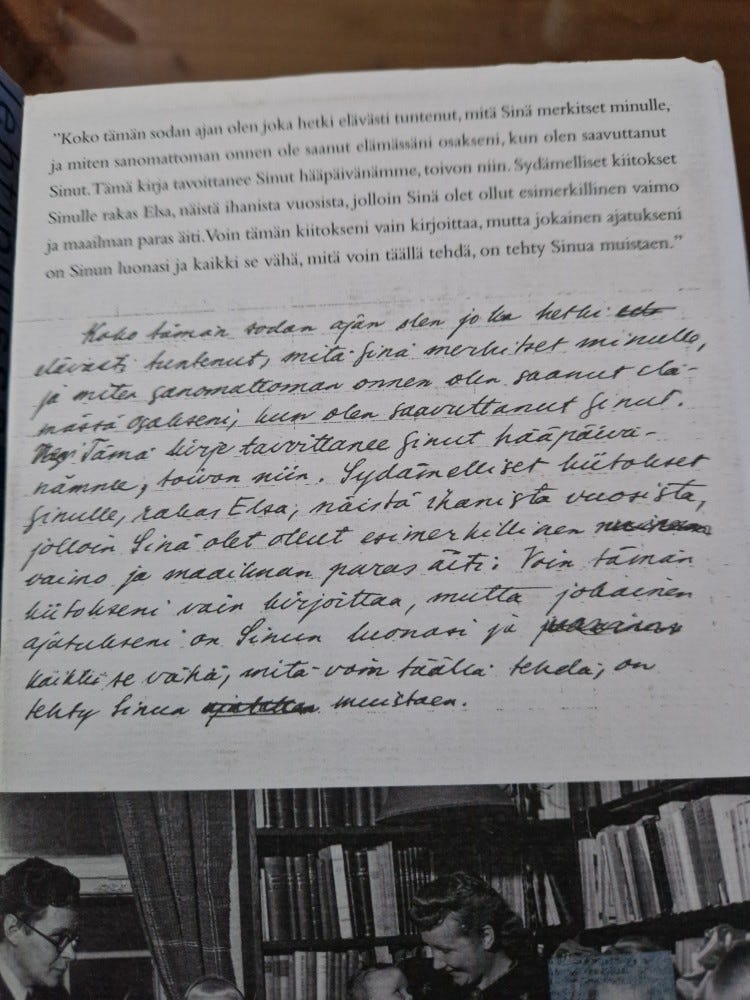 "Koko tämän sodan ajan olen joka hetki elävästi tuntenut, mitä Sinä merkitset minulle,
ja miten sanomattoman onnen ole saanut elämässäni osakseni, kun olen saavuttanut
Sinut. Tämä kirja tavoittanee Sinut hääpäivänämme, toivon niin. Sydämelliset kiitokset
Sinulle rakas Elsa, näistä ihanista vuosista, jolloin Sinä olet ollut esimerkillinen vaimo
ja maailman paras äiti. Voin tämän kiitokseni vain kirjoittaa, mutta jokainen ajatukseni
on Sinun luonasi ja kaikki se vähä, mitä voin täällä tehdä, on tehty Sinua muistaen."
Koko tämän sodan ajan olen joka hetki
elävästi tuntenut, mitä Sinä merkitset minulle,
ja miten sanomattoman onnen olen saanut elä-
mässä osakseni, kun olen saavuttanut Sinut.
Tämä kirje tavoittanee Sinut hääpäivä-
nämme, toivon niin. Sydämelliset kiitokset
Sinulle, rakas Elsa, näistä ihanista vuosista,
jolloin Sinä olet ollut esimerkillinen
vaimo ja maailman paras äiti. Voin tämän
kiitokseni vain kirjoittaa, mutta jokainen
ajatukseni on Sinun luonasi ja
kaikki se vähä, mitä voin täällä tehdä, on
tehty Sinua muistaen.